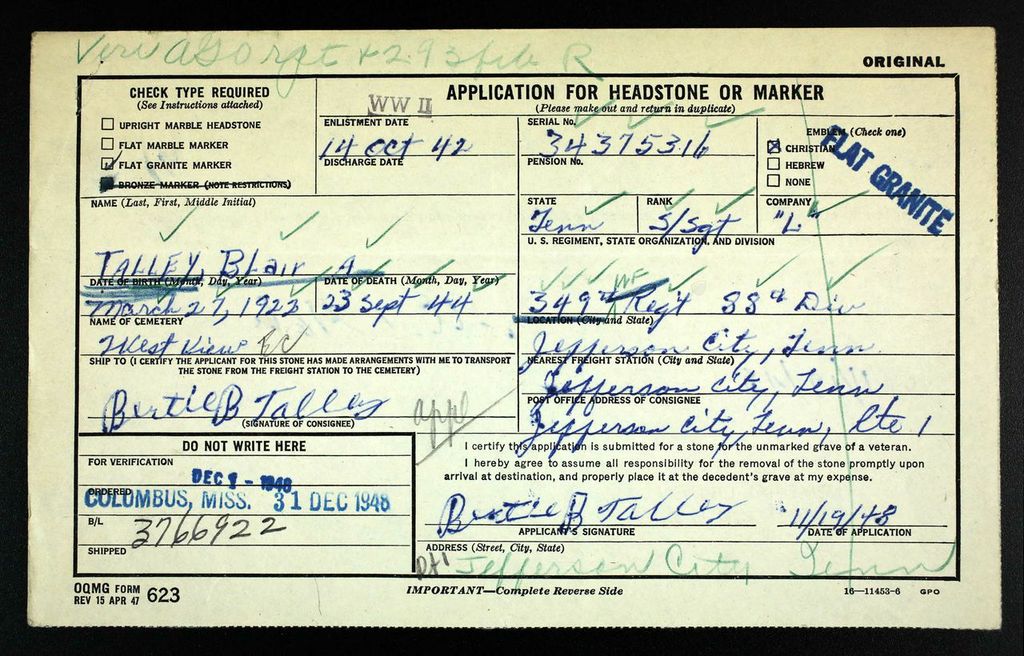 ORIGINAL
CHECK TYPE REQUIRED
(See Instructions attached)
UPRIGHT MARBLE HEADSTONE
FLAT MARBLE MARKER
FLAT GRANITE MARKER
BRONZE MARKER (NOTE RESTRICTIONS)
WW II
ENLISTMENT DATE
14 Oct 42
DISCHARGE DATE
APPLICATION FOR HEADSTONE OR MARKER
(Please make out and return in duplicate)
SERIAL No.
34375316
PENSION No.
EMBLEM (Check one)
CHRISTIAN
HEBREW
NONE
FLAT GRANITE
NAME (Last, First, Middle Initial)
TALLEY, Blair A
STATE
Tenn
RANK
S/Sgt
COMPANY
"L"
U. S. REGIMENT, STATE ORGANIZATION, AND DIVISION
349th Inf Reg't 88th Div
DATE OF BIRTH (Month, Day, Year)
March 27, 1922
DATE OF DEATH (Month, Day, Year)
23 Sept 44
NAME OF CEMETERY
West View
LOCATION (City and State)
Jefferson City, Tenn.
SHIP TO (I CERTIFY THE APPLICANT FOR THIS STONE HAS MADE ARRANGEMENTS WITH ME TO TRANSPORT
THE STONE FROM THE FREIGHT STATION TO THE CEMETERY)
Bertie B Talley
(SIGNATURE OF CONSIGNEE)
appl
NEAREST FREIGHT STATION (City and State)
Jefferson City, Tenn
POST OFFICE ADDRESS OF CONSIGNEE
Jefferson City, Tenn, Rte 1
DO NOT WRITE HERE
FOR VERIFICATION
DEC 1 - 1948
ORDERED
COLUMBUS, MISS. 31 DEC 1948
B/L
3766922
SHIPPED
I certify this application is submitted for a stone for the unmarked grave of a veteran.
I hereby agree to assume all responsibility for the removal of the stone promptly upon
arrival at destination, and properly place it at the decedent's grave at my expense.
Bertie B Talley
APPLICANT'S SIGNATURE
11/19/48
DATE OF APPLICATION
ADDRESS (Street, City, State)
Jefferson City Tenn
OQMG FORM
REV 15 APR 47 623
IMPORTANT—Complete Reverse Side
16—11453-6 GPO